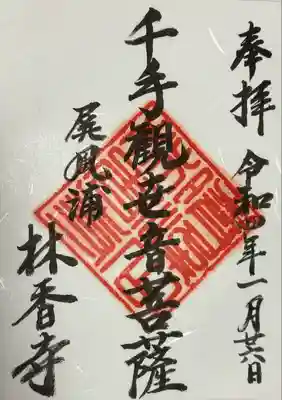 奉拝 令和四年一月廿六日
千手観世音菩薩
屏風浦
林香寺